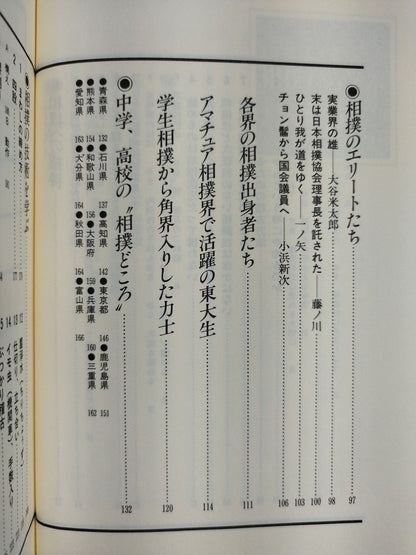 ●相撲のエリートたち 97
実業界の雄――大谷米太郎 98
末は日本相撲協会理事長を託された――藤ノ川 100
ひとり我が道をゆく――一ノ矢 103
チョン髷から国会議員へ――小浜新次 106
各界の相撲出身者たち 111
アマチュア相撲界で活躍の東大生 114
学生相撲から角界入りした力士 120
●中学、高校の〝相撲どころ〟 132
●青森県 132 ●石川県 137 ●高知県 142 ●東京都 146 ●鹿児島県 151
●熊本県 154 ●和歌山県 156 ●大阪府 159 ●兵庫県 160 ●三重県 162
●愛知県 163 ●大分県 164 ●秋田県 164 ●富山県 166
●相撲の技術を学ぶ